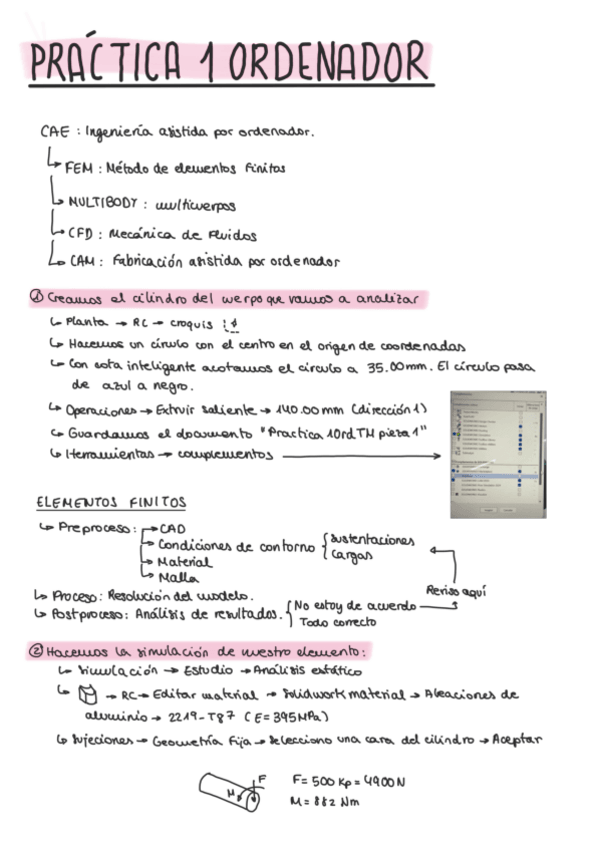 PRÁCTICA 1 ORDENADOR
CAE : Ingeniería asistida por ordenador.
↳ FEM : Método de elementos finitos
↳ MULTIBODY : multicuerpos
↳ CFD : Mecánica de Fluidos
↳ CAM : Fabricación asistida por ordenador
① Creamos el cilindro del cuerpo que vamos a analizar
↳ Planta → RC → croquis
↳ Hacemos un círculo con el centro en el origen de coordenadas
↳ Con cota inteligente acotamos el círculo a 35.00mm. El círculo pasa
de azul a negro.
↳ Operaciones → Extruir saliente → 140.00 mm (dirección 1)
↳ Guardamos el documento "Practica 1OrdTM pieza 1"
↳ Herramientas → complementos
ELEMENTOS FINITOS
↳ Preproceso :
CAD
Condiciones de contorno { Sustentaciones
Cargas
Material
Malla
↳ Proceso : Resolución del modelo.
Reviso aquí
↳ Postproceso : Análisis de resultados. { No estoy de acuerdo
Todo correcto
② Hacemos la simulación de nuestro elemento :
↳ Simulación → Estudio → Análisis estático
↳ → RC → Editar material → Solidwork material → Aleaciones de
aluminio → 2219-T87 (E = 395MPa)
↳ Sujeciones → Geometría Fija → Selecciono una cara del cilindro → Aceptar
F
M
F = 500 Kp = 4900 N
M = 882 Nm